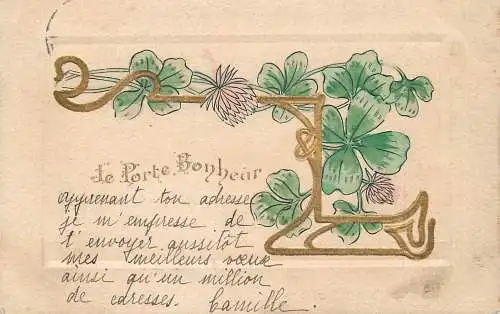 Je Porte Bonheur
apprenant ton adresse
je m'empresse de
t'envoyer aussitôt
mes meilleurs vœux
ainsi qu'un million
de caresses. Camille.